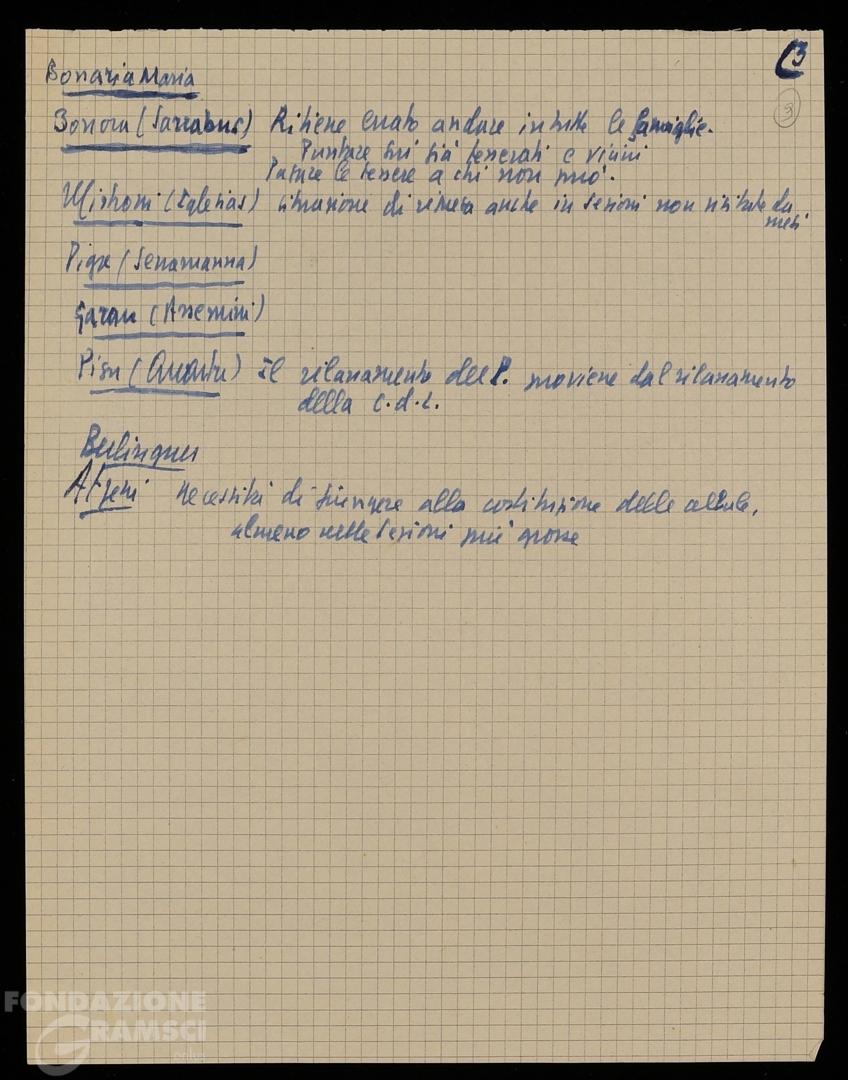 3
3
Bonaria Maria
Bonora (Sarrabus) Ritiene errato andare in tutte le famiglie.
Puntare sui già tesserati e vicini
Pagare le tessere a chi non può.
Mistroni (Iglesias) situazione di ripresa anche in sezioni non visitate da
mesi
Piga (Serramanna)
Garau (Assemini)
Pisu (Quartu) Il rilassamento del P. proviene dal rilassamento
della C.d.L.
Berlinguer
Atzeni Necessità di spingere alla costituzione delle cellule,
almeno nelle Sezioni più grosse
FONDAZIONE
GRAMSCI
onlus